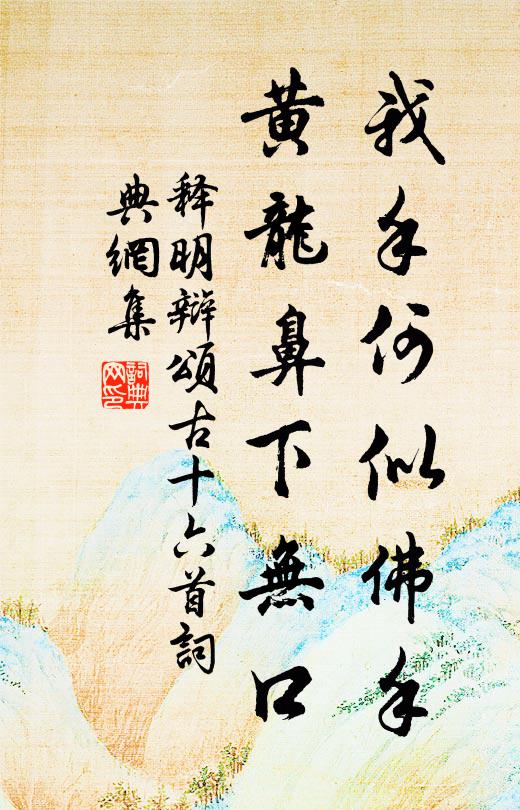 我手何似佛手
黄龍鼻下無口
释明辯頌古十六首詞
典網集
詞典網印